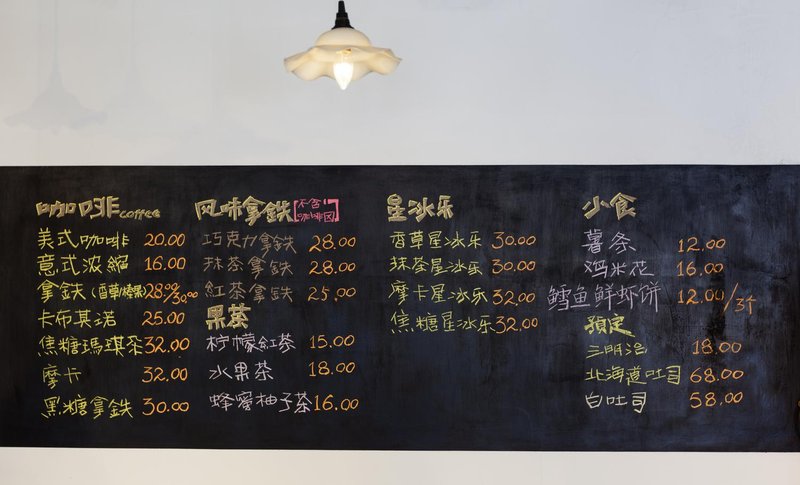 咖啡coffee
美式咖啡 20.00
意式浓縮 16.00
拿鉄(香草/榛果) 28.00/30.00
卡布其诺 25.00
焦糖瑪琪朵 32.00
摩卡 32.00
黑糖拿鉄 30.00
风味拿鉄[不含咖啡因]
巧克力拿鉄 28.00
抹茶拿鉄 28.00
紅茶拿鉄 25.00
黑茶
柠檬紅茶 15.00
水果茶 18.00
蜂蜜柚子茶 16.00
星冰乐
香草星冰乐 30.00
抹茶星冰乐 30.00
摩卡星冰乐 32.00
焦糖星冰乐 32.00
小食
薯条 12.00
鸡米花 16.00
鳕鱼鲜虾饼 12.00/3个
預定
三明治 18.00
北海道吐司 68.00
白吐司 58.00